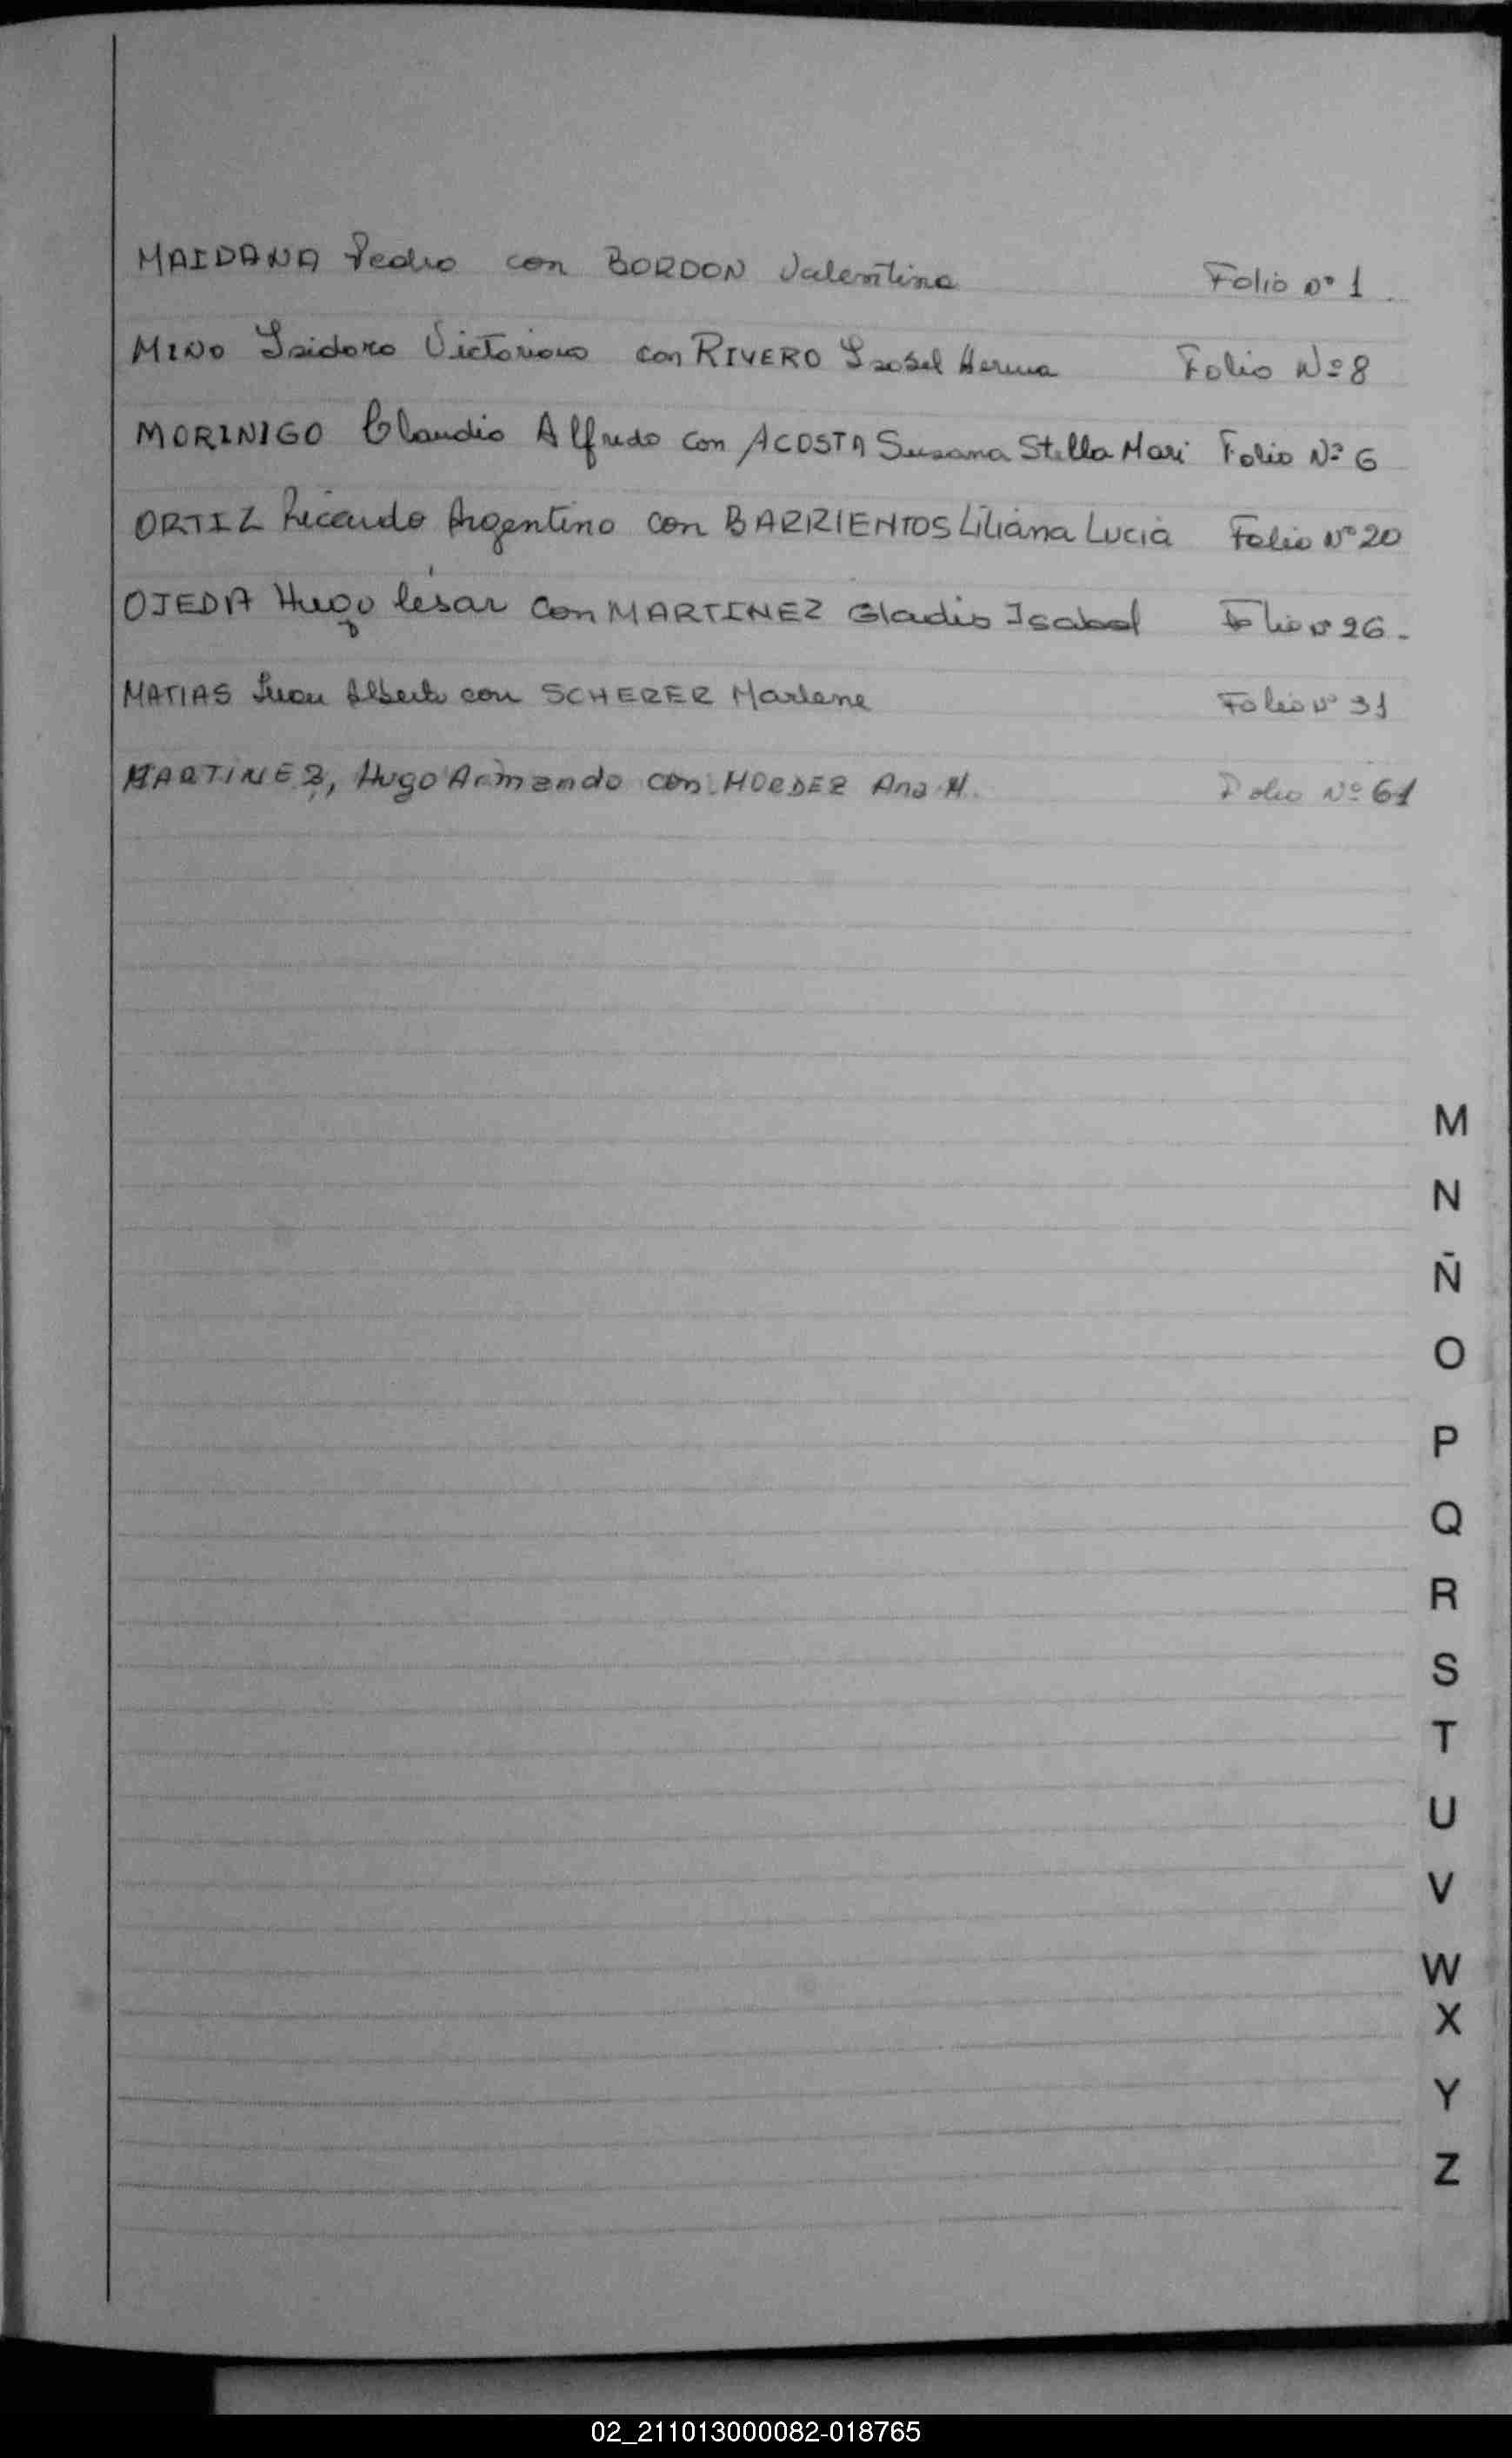 MAIDANA Pedro con BORDON Valentina Folio Nº 1
MINO Isidoro Victoriano con RIVERO Isabel Folio Nº 8
MORINIGO Claudio Alfredo con ACOSTA Susana Stella Mari Folio Nº 6
ORTIZ Ricardo Argentino con BARRIENTOS Liliana Lucia Folio Nº 20
OJEDA Hugo César con MARTINEZ Gladis Isabel Folio Nº 26.
MATIAS Juan Alberto con SCHERER Marlene Folio Nº 31
MARTINEZ, Hugo Armando con Ana M. Folio Nº 61
M
N
Ñ
O
P
Q
R
S
T
U
V
W
X
Y
Z
02_211013000082-018765